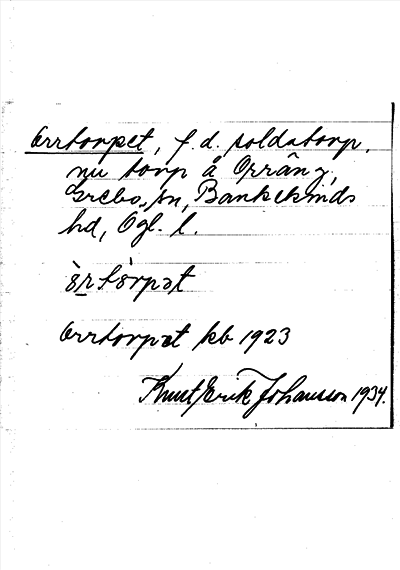 Orrtorpet, f.d. soldattorp,
nu torp å Orräng,
Grebo sn, Bankekinds
hd, Ögl. l.
Orrtorpet kb 1923
Knut Erik Johansson 1934.